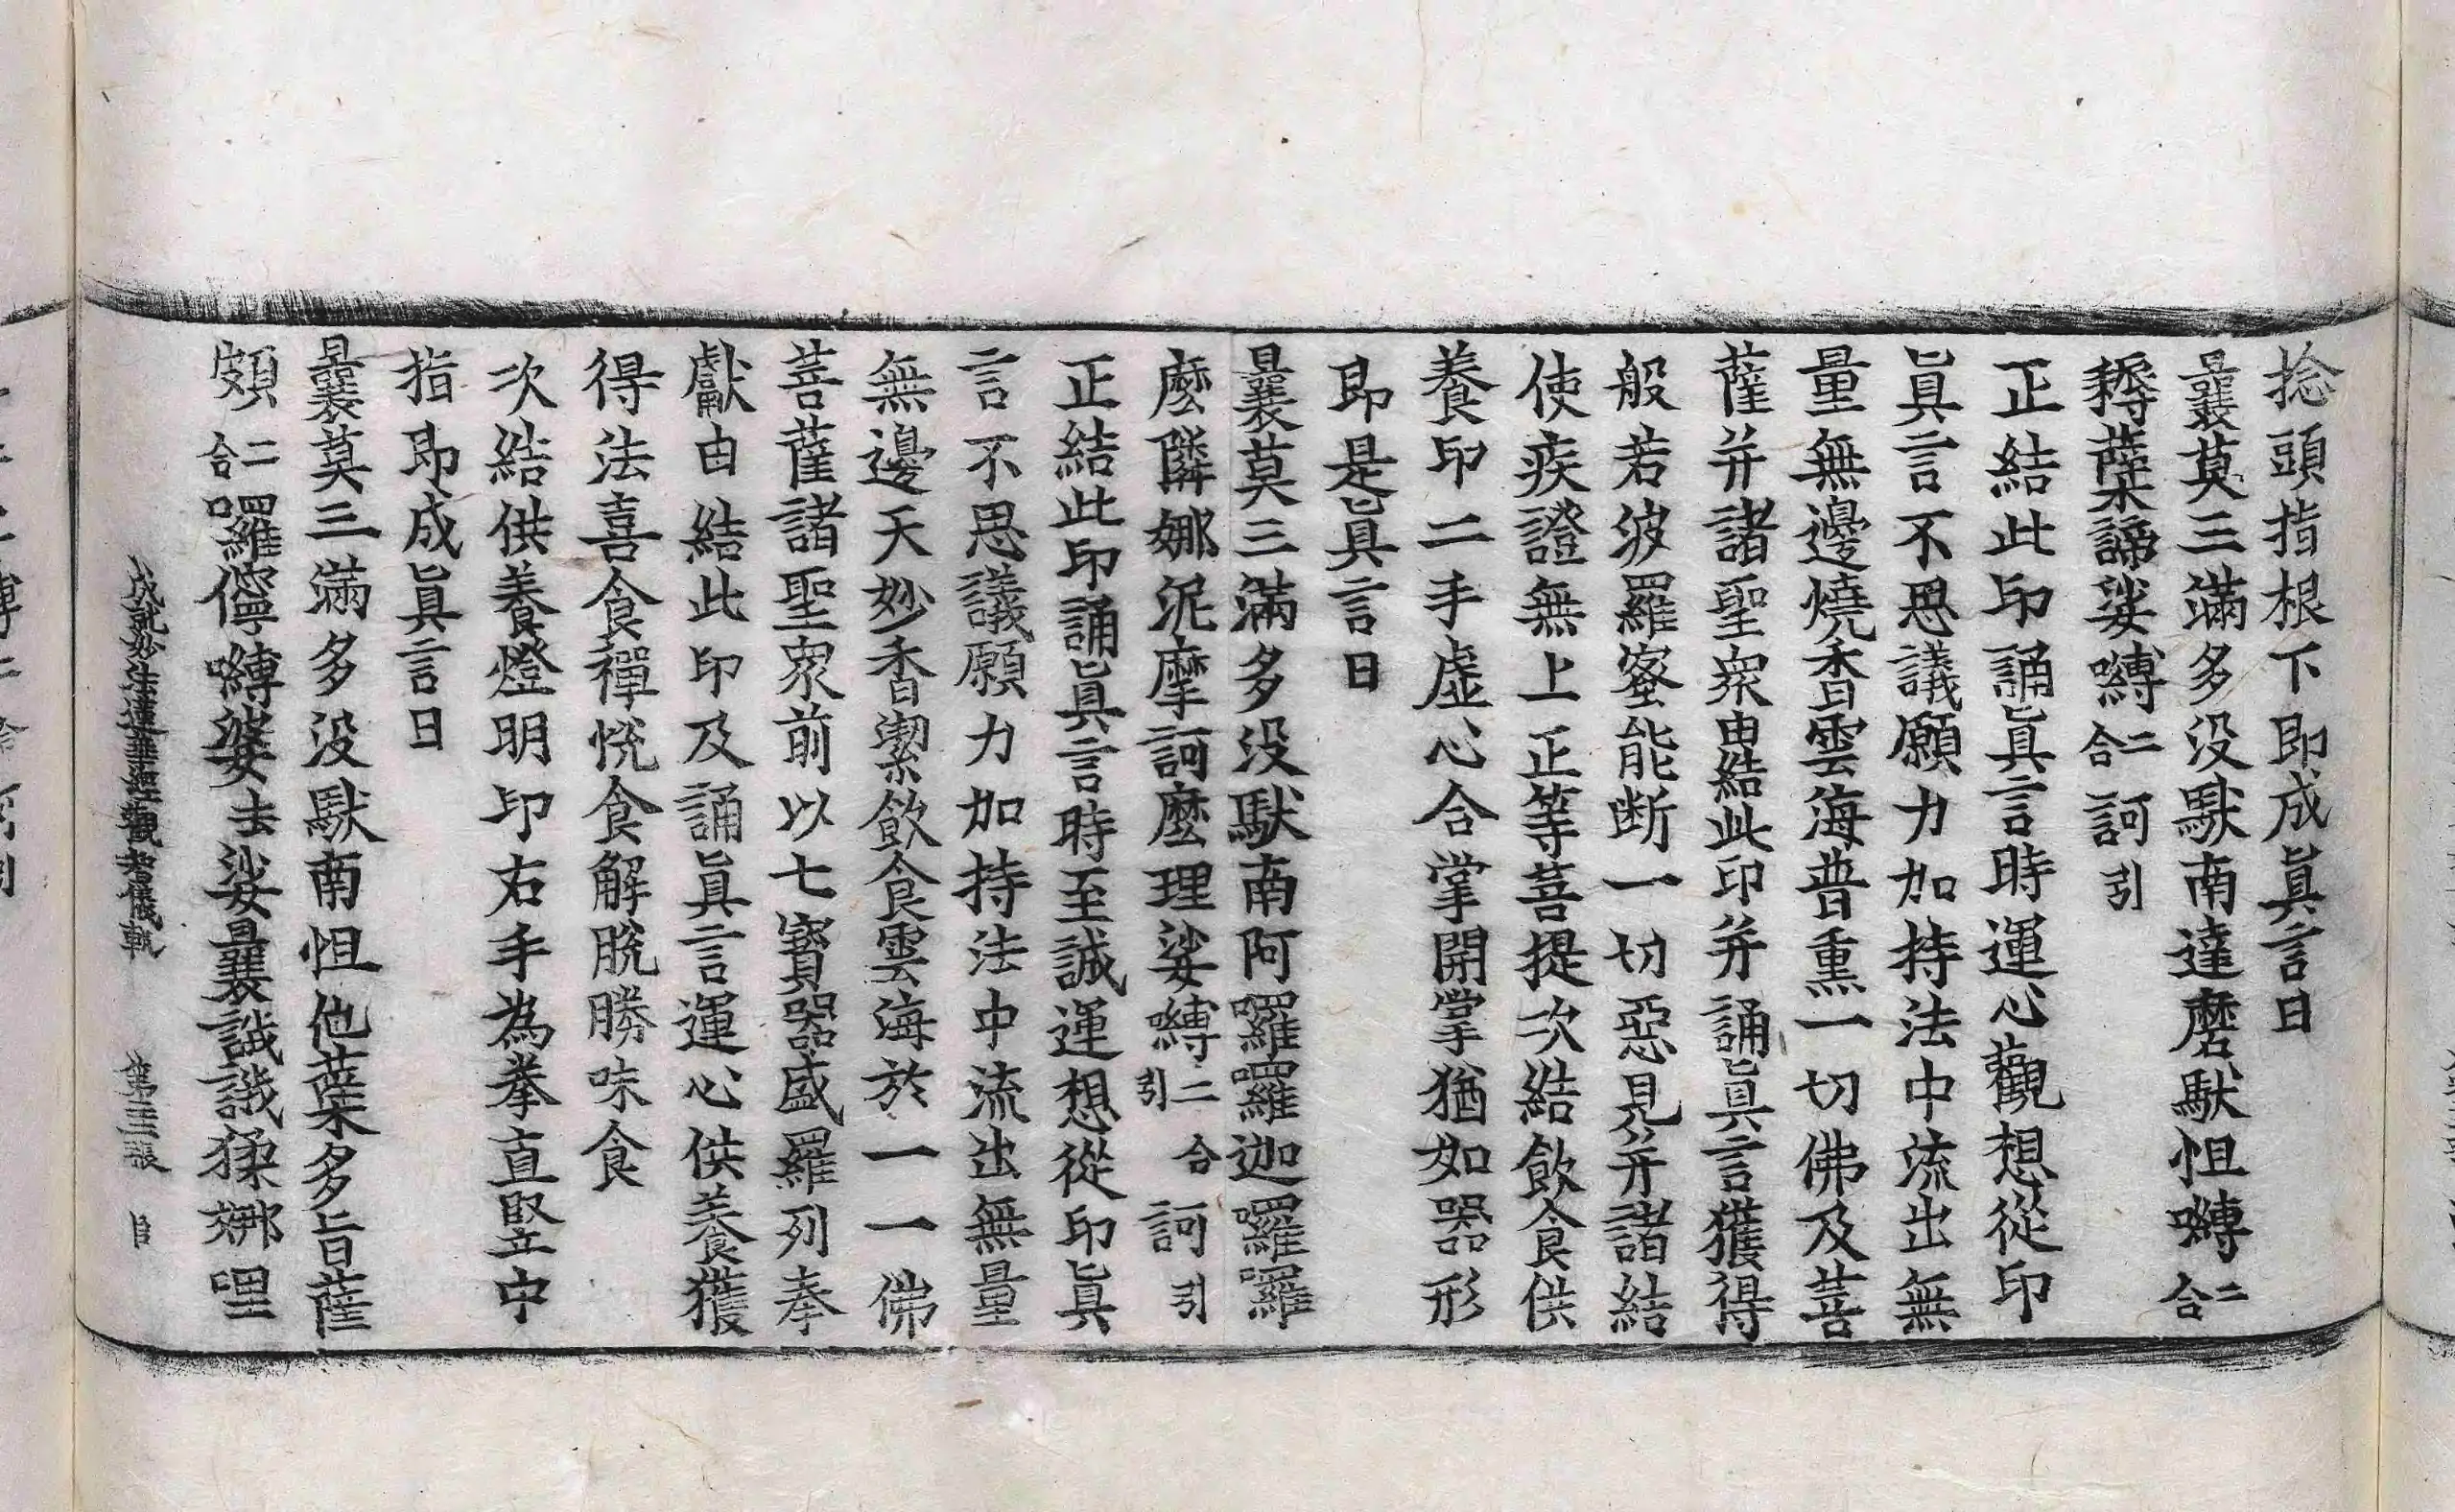 捻頭指根下即成眞言曰
曩莫三滿多没馱南達磨馱怛嚩二合
耨蘖諦娑嚩二合訶引
正結此印誦眞言時運心觀想從印
眞言不思議願力加持法中流出無
量無邊燒香雲海普熏一切佛及菩
薩并諸聖衆由結此印并誦眞言獲得
般若波羅蜜能断一切惡見并諸結
使疾證無上正等菩提次結飲食供
養印二手虛心合掌開掌猶如器形
即是眞言曰
曩莫三滿多没馱南阿囉囉迦囉囉
麽隣娜泥摩訶麽理娑嚩二合引訶引
正結此印誦眞言時至誠運想從印眞
言不思議願力加持法中流出無量
無邊天妙香潔飲食雲海於一一佛
菩薩諸聖衆前以七寳器盛羅列奉
獻由結此印及誦眞言運心供養獲
得法喜食禪恱食解脱勝味食
次結供養燈明印右手為拳直竪中
指即成眞言曰
曩莫三滿多没馱南怛他蘖多旨薩
頗二合囉儜嚩娑去娑曩誐誐猱娜哩
成就妙法蓮華經觀智儀軌 第三張